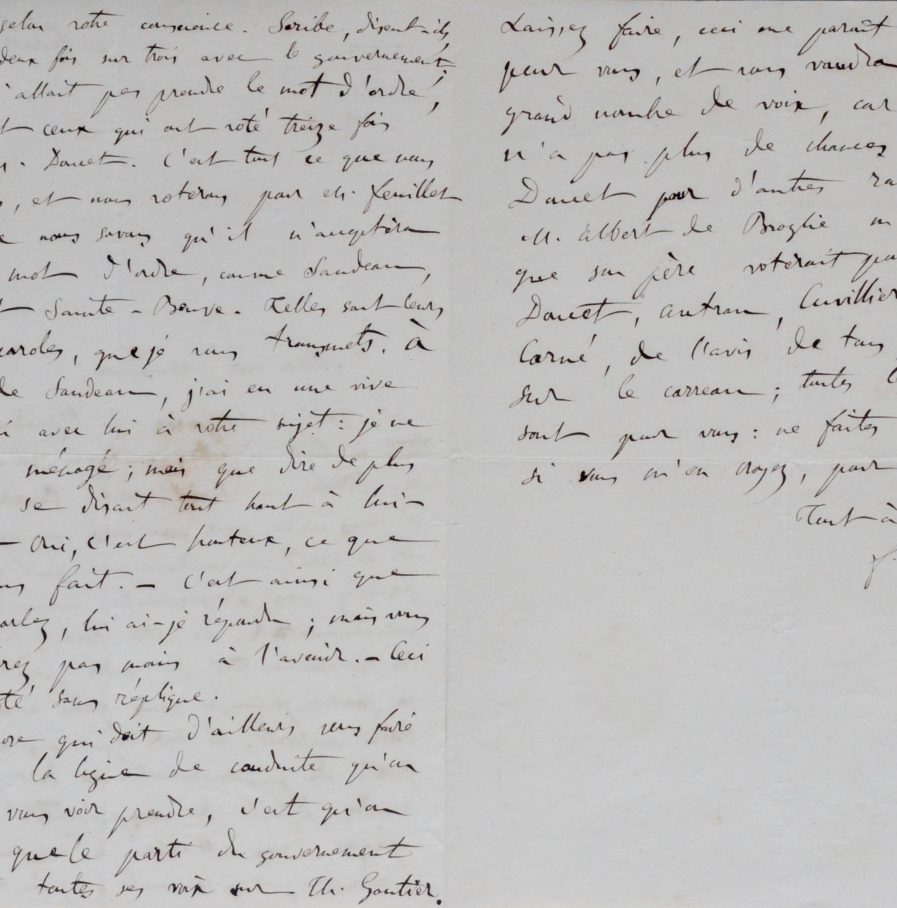 selon votre conscience. Scribe, disent-ils,
deux fois sur trois avec le gouvernement,
n'allait pas prendre le mot d'ordre,
t ceux qui ont voté treize fois
Doucet. C'est tout ce que nous
, et nous voterons pour M. Feuillet
e nous savons qu'il n'acceptera
mot d'ordre, comme Sandeau,
t Sainte-Beuve. Telles sont leurs
paroles, que je vous transmets. à
de Sandeau, j'ai eu une vive
avec lui à votre sujet : je ne
ménagé ; mais que dire de plus
se disait tout haut à lui-
– Oui, c'est honteux, ce que
fait. – C'est ainsi que
parlez, lui ai-je répondu ; mais vous
rez pas moins à l'avenir. – Ceci
té sans réplique.
ore qui doit d'ailleurs vous faire
la ligne de conduite qu'on
vous voir prendre, c'est qu'on
que le parti du gouvernement
toutes ses voix sur Th. Gautier.
Laissez faire, ceci me paraît
pour vous, et vous vaudra
grand nombre de voix, car
n'a pas plus de chances
Doucet pour d'autres ra
M. Albert de Broglie m
que son père voterait pou
Doucet, Autran, Cuvillier
Carné, de l'avis de tous,
sur le carreau ; toutes l
sont pour vous : ne faites
si vous m'en croyez, pour
Tout à